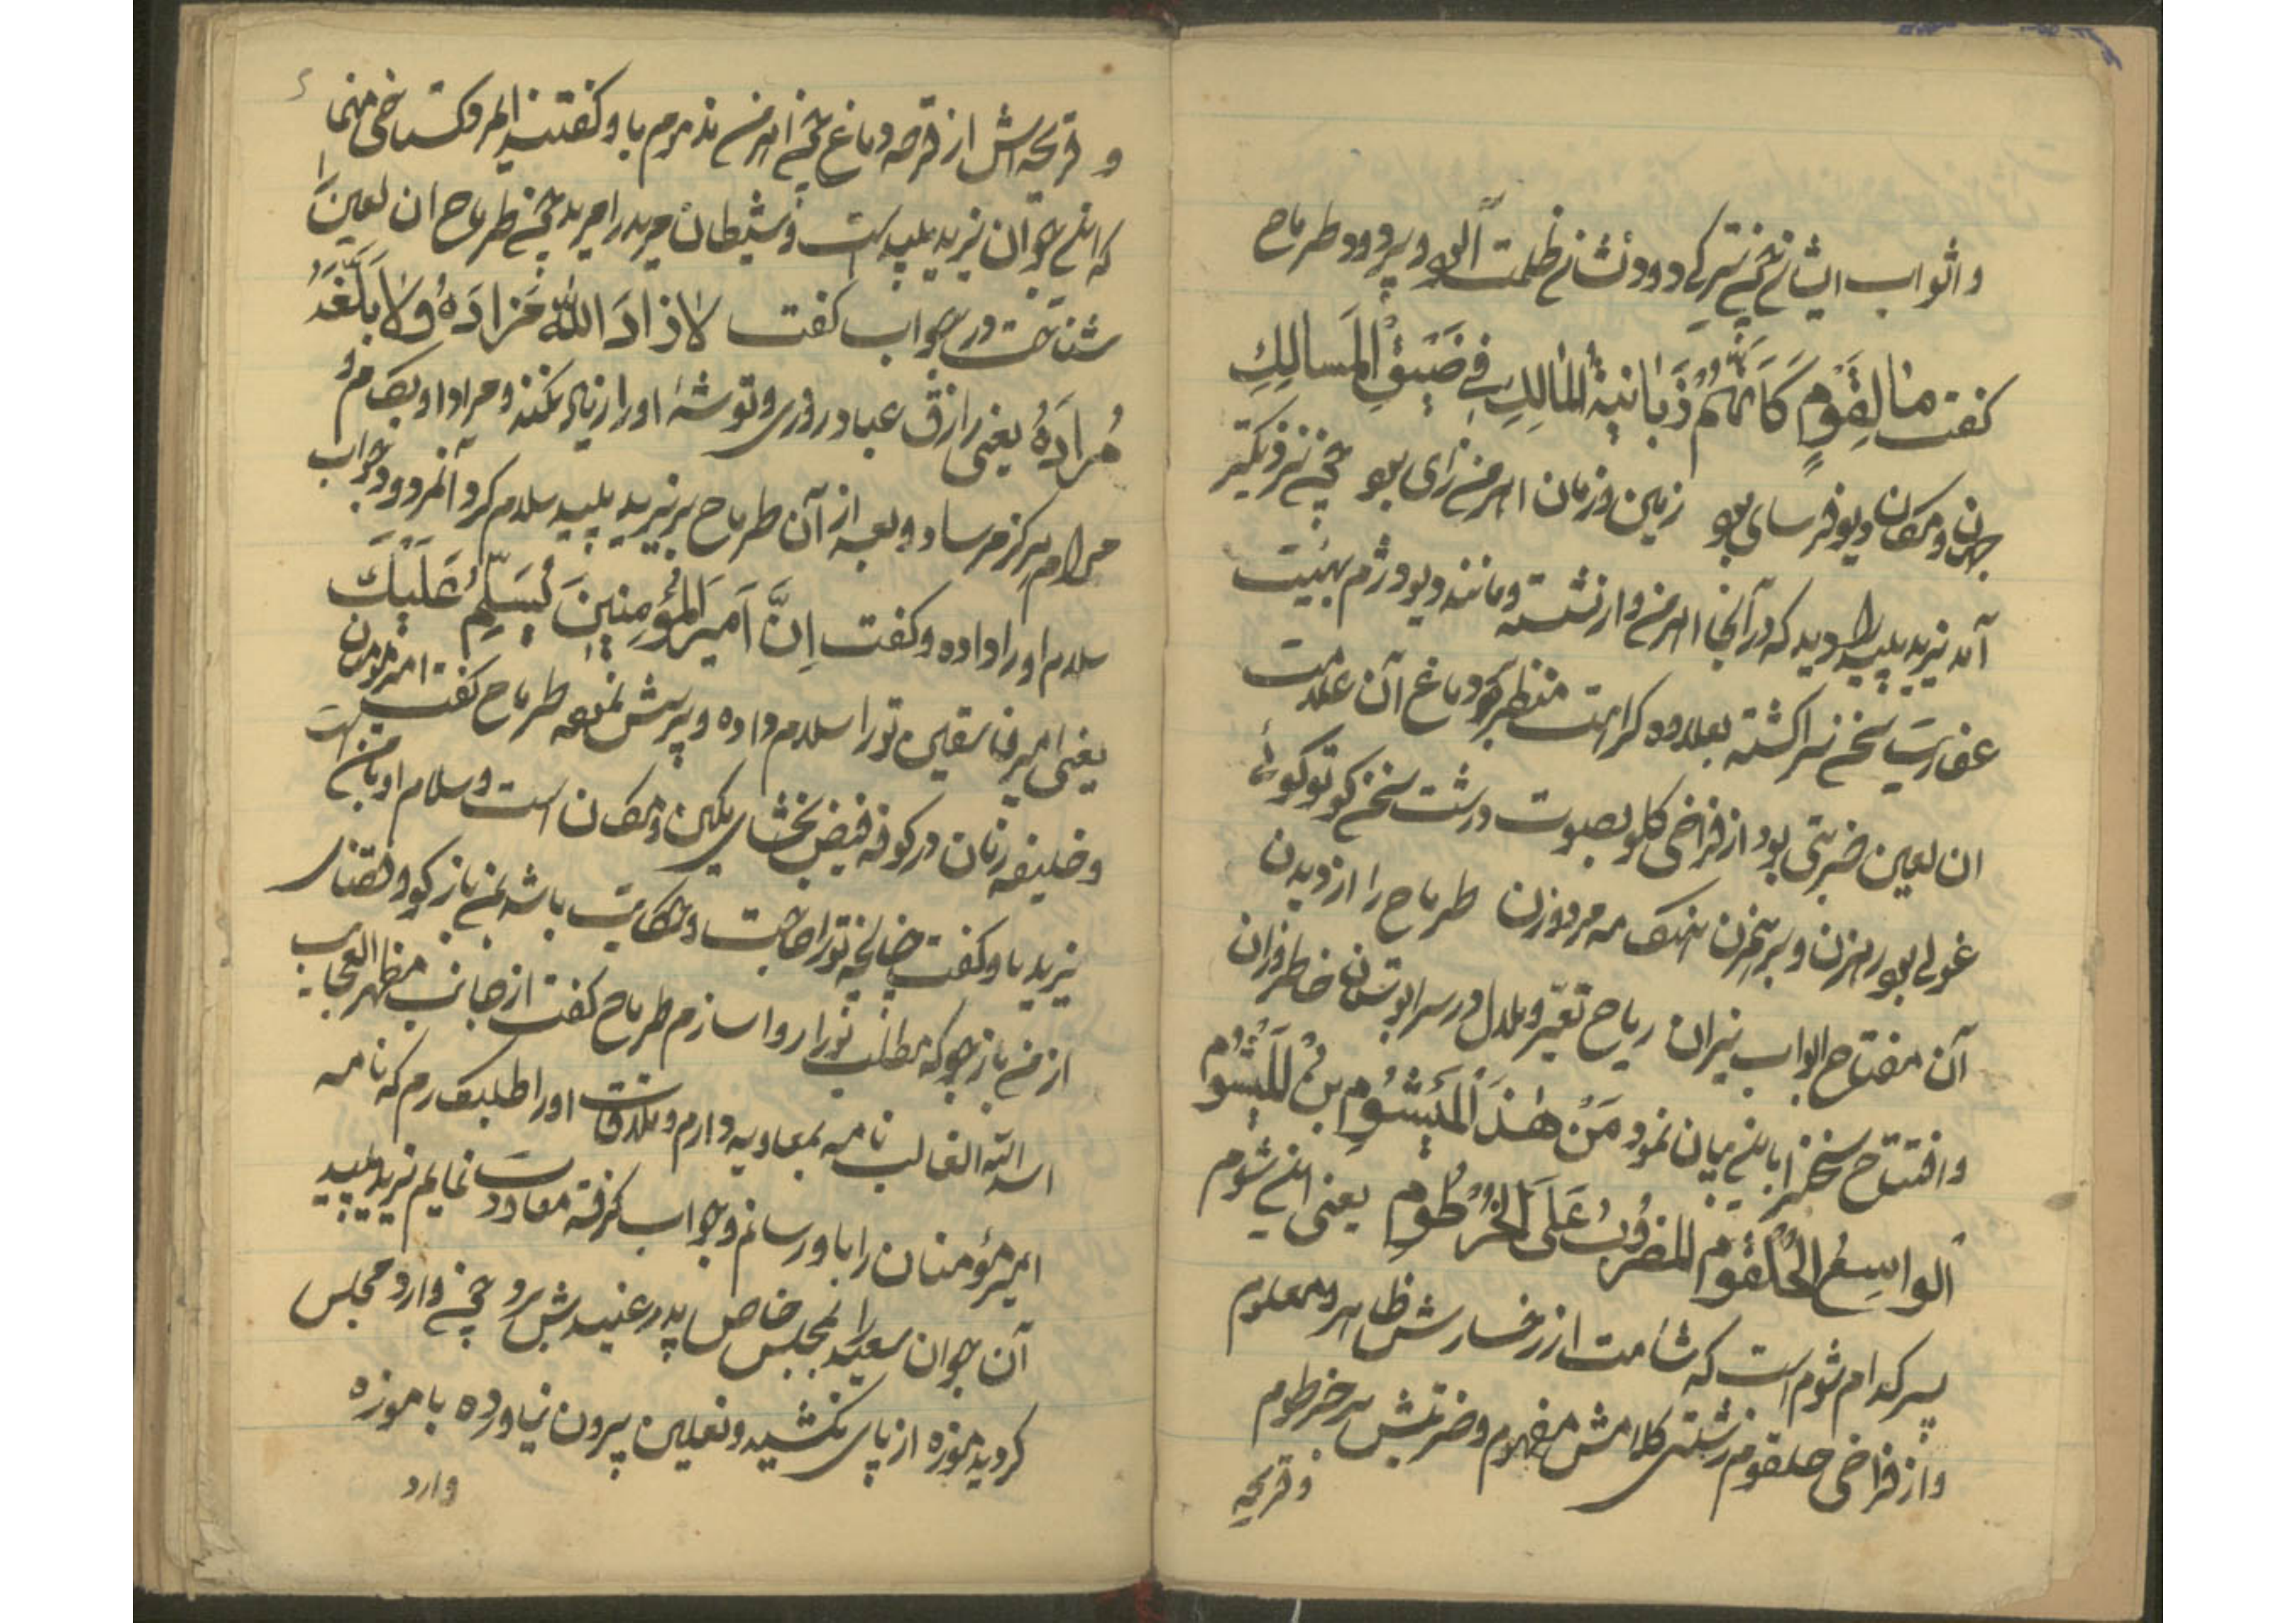 واثواب ایشان چون تیرگی دود نشان ظلمت آلود و پر دود طرماح
گفت ما لِقَومٍ كَاَنَّهُم زَبانیةُ المالِكِ فی ضَیقِ المَسالِكِ
جهان و مکان دیو فرسای بود زمین و زمان اهرمن زای بود چون نزدیکتر
آمد یزید پلید را دید که در آنجا اهرمن وار نشسته و مانند دیو دژم بهیئت
عفاریت سخن سرا گشته بعلاوه کراهت منظر بر دماغ آن علامت
ان لعین ضربتی بود از فراخی گلو بصوت درشت سخن گو تو گوئی
غولی بود رهزن و بر انجمن نهنک مه مرد و زن طرماح را از دیدن
آن مفتاح ابواب نیران ریاح تغیر و بلدل در سرابوستان خاطر وزان
وافتتاح سخن باین بیان نمود مَن هٰذَا المَیشُومِ بنُ المَیشُومِ
اَلواسِعُ الحُلقُومِ المَضرُوبُ عَلَی الخُرطُومِ یعنی این شوم
پسر کدام شوم است که شامت از رخسارش ظاهر و معلوم
واز فراخی حلقوم زشتی کلامش مفهوم و ضربتش بر خرطوم
و قریحه
و قریحه اش از قرحه دماغ چون اهرمن مذموم باو گفتند المرو گستاخی منما
که این جوان یزید پلید است و شیطان مرید را مرید چون طرماح ان لعین را
شناخت در جواب گفت لا زادَ اللّٰهُ مَزادَهُ وَلا بَلَّغَهُ
مُرادَهُ یعنی رازق عباد روزی و توشهٔ او را زیاد نکند و مراد او بکام و
مرام هرگز مرساد و بعد از آن طرماح بر یزید پلید سلام کرد آنمردود جواب
سلام او را داده و گفت اِنَّ اَمیرَ المُؤمِنینَ یُسَلِّمُ عَلَیكَ
یعنی امیر فاسقین تو را سلام داده و پرسش نموده طرماح گفت امیر مومنان
و خلیفه زمان در کوفه فیض بخشای مکین و مکان است و سلام او با من است
یزید باو گفت چنانچه تو را حاجت و حکایت باشد بمن باز گو و مقتضای
از من باز جو که مطلب تو را روا سازم طرماح گفت از جانب مظهر العجایب
اسد الله الغالب نامه بمعاویه دارم و ملاقات او را طلبکارم که نامه
امیر مؤمنان را باو رسانم و جواب گرفته معاودت نمایم یزید پلید
آن جوان سعید را بمجلس خاص پدر عنیدش برد چون وارد مجلس
گردید موزه از پای نکشید و نعلین بیرون نیاورده با موزه
وارد